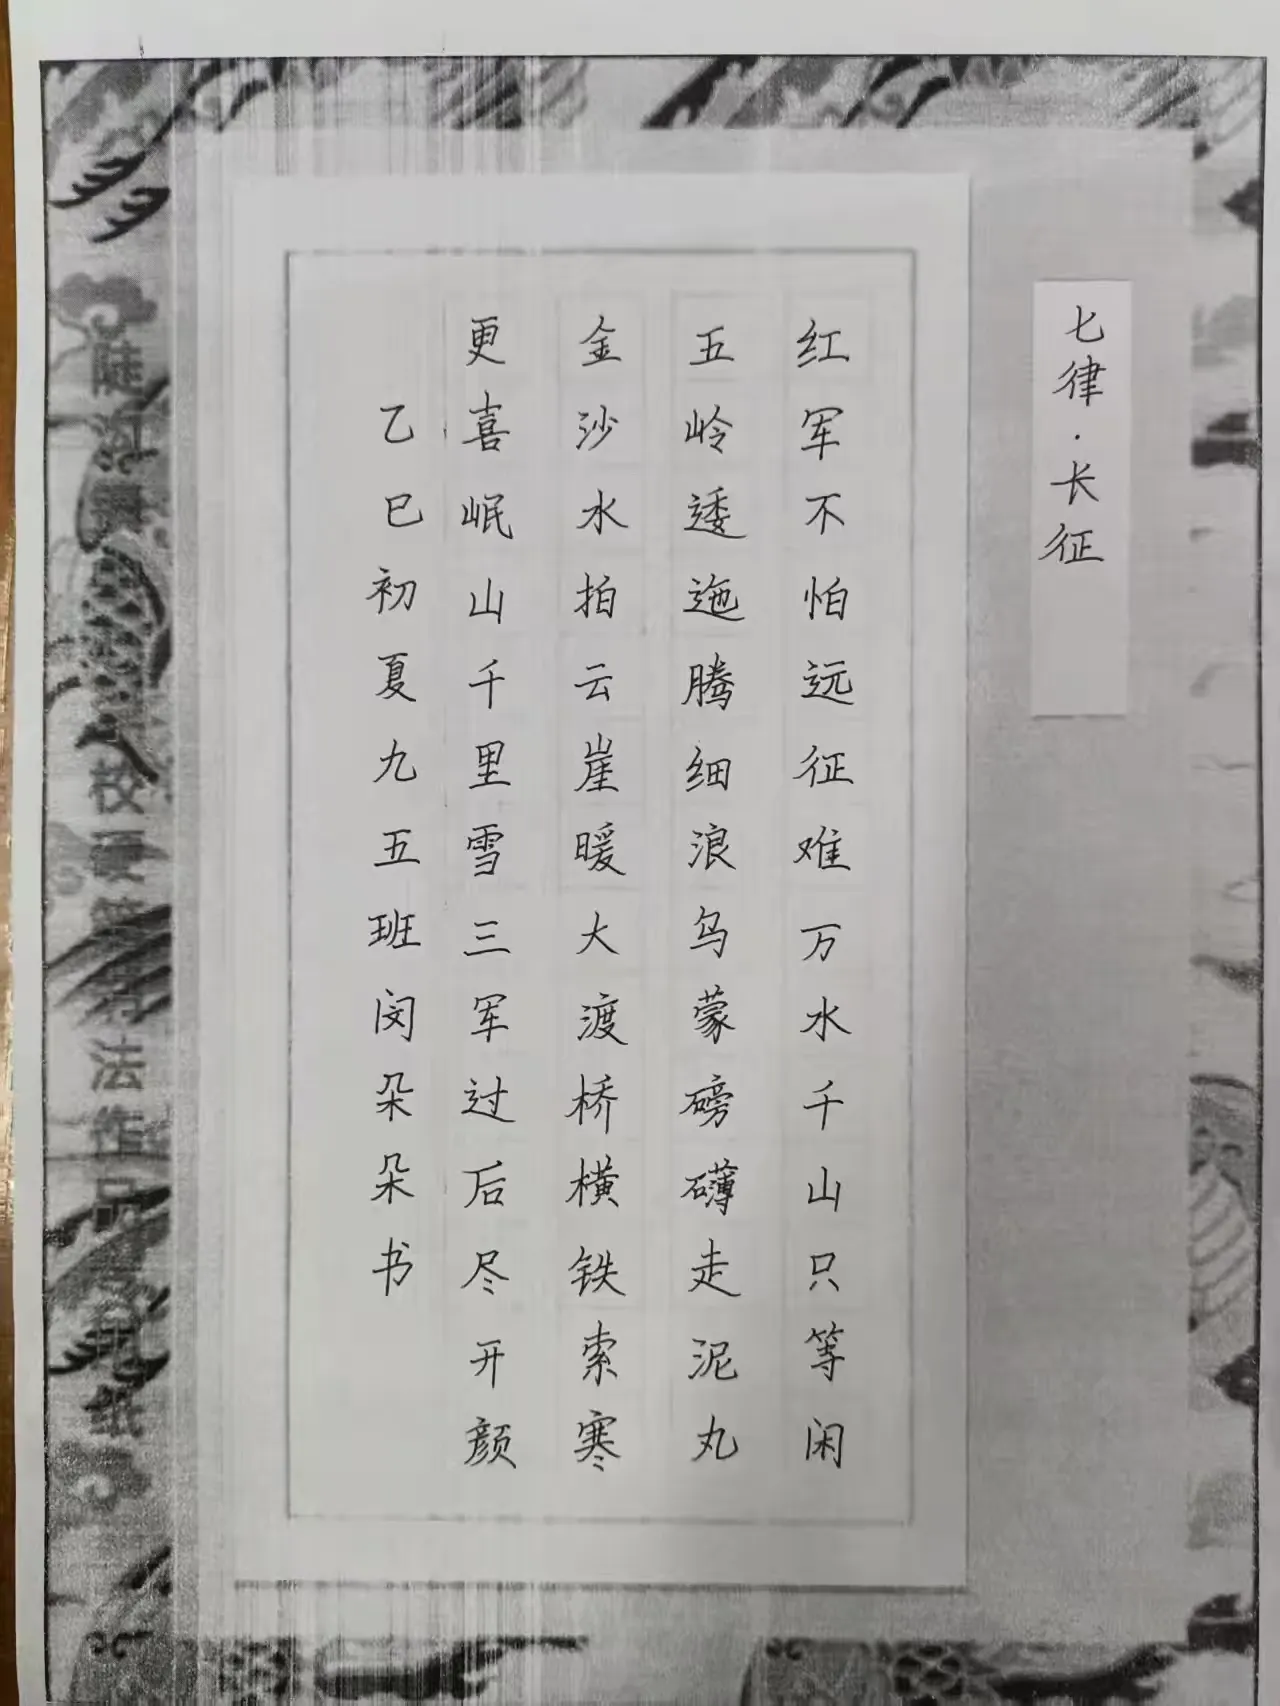 七律·长征
红军不怕远征难万水千山只等闲
五岭逶迤腾细浪乌蒙磅礴走泥丸
金沙水拍云崖暖大渡桥横铁索寒
更喜岷山千里雪三军过后尽开颜
乙巳初夏九五班闵朵朵书
校硬笔书法作品